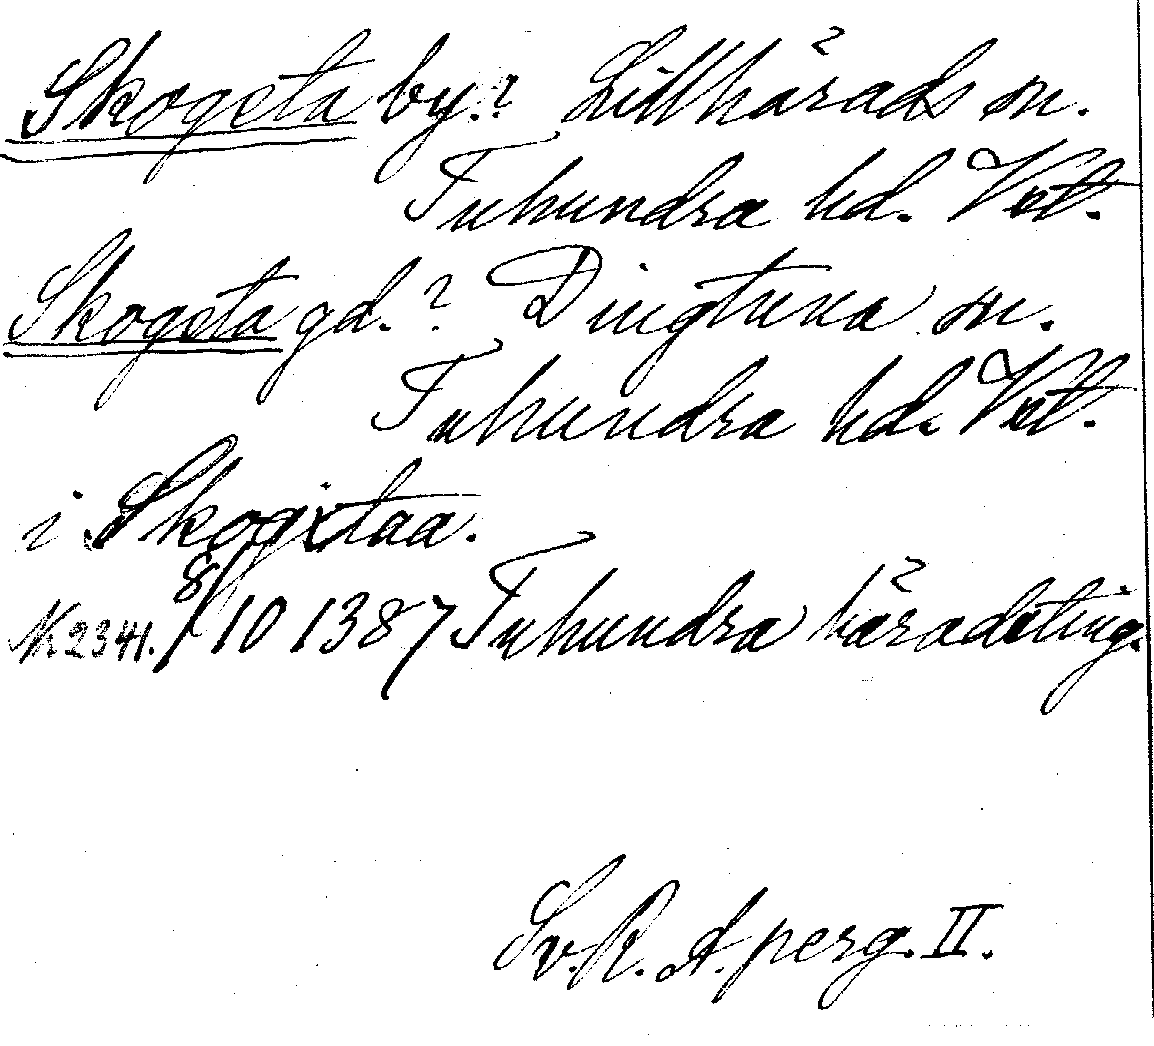 Skogsta by.? Lillhärads sn.
Tuhundra hd. Vstl.
Skogsta gd.? Dingtuna sn.
Tuhundra hd. Vstl.
i Skogxtaa.
N. 2341. 8/10 1387 Tuhundra häradsting.
Sv. R. A. perg. II.